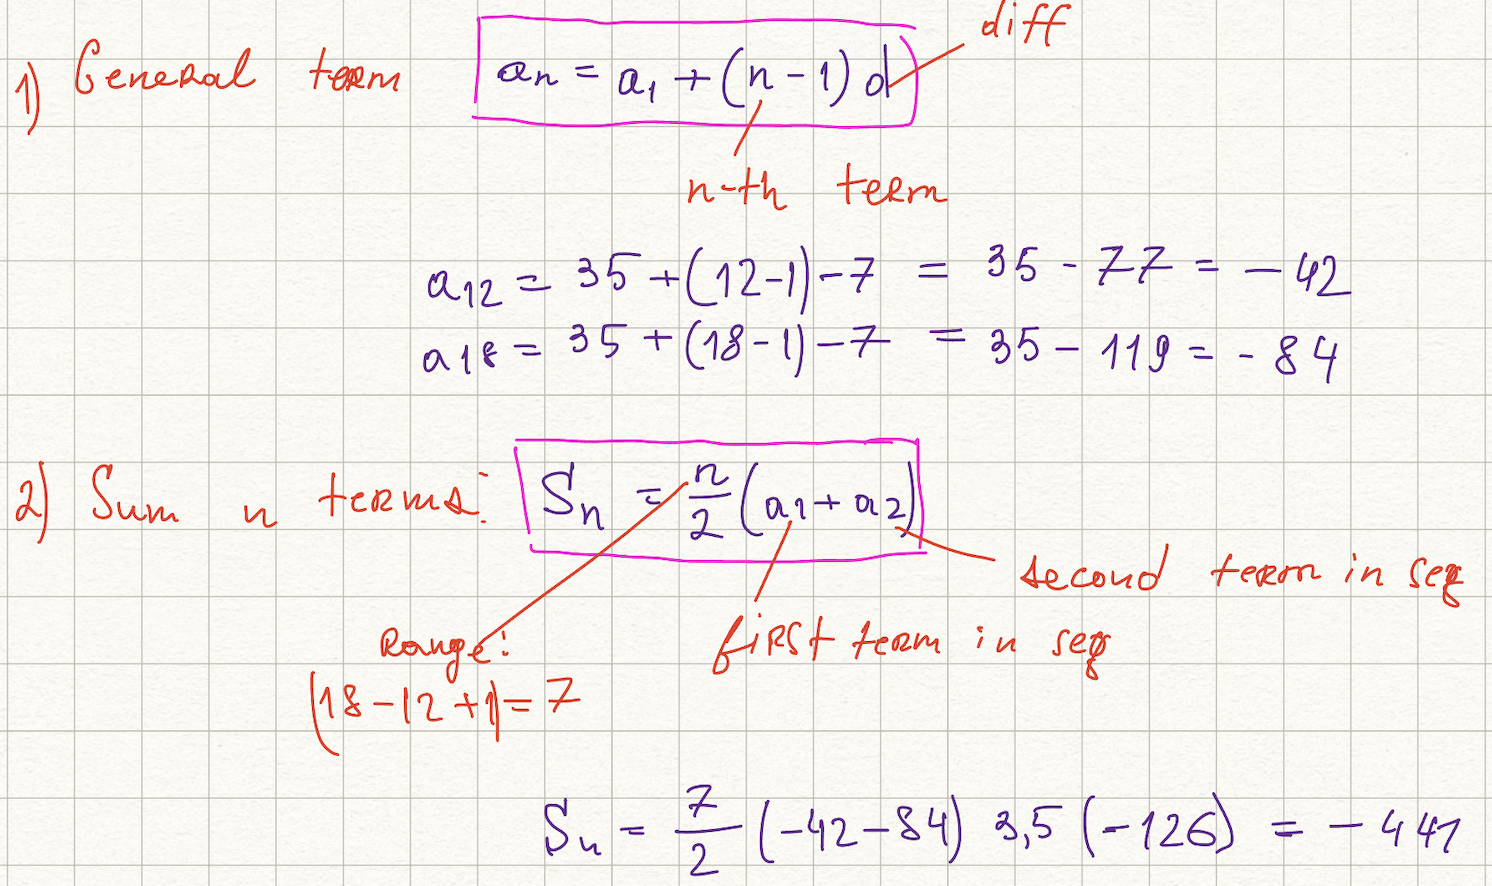 diff
1) General term an = a1 + (n - 1) d
n-th term
a12 = 35 + (12-1) - 7 = 35 - 77 = - 42
a18 = 35 + (18-1) - 7 = 35 - 119 = - 84
2) Sum n terms: Sn = n/2 (a1 + a2)
second term in seq
Range: first term in seq
(18 - 12 + 1) = 7
Sn = 7/2 (-42 - 84) 3,5 (-126) = - 441